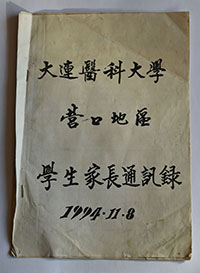 大連醫科大學
营口地區
學生家長通訊録
1994·11·8